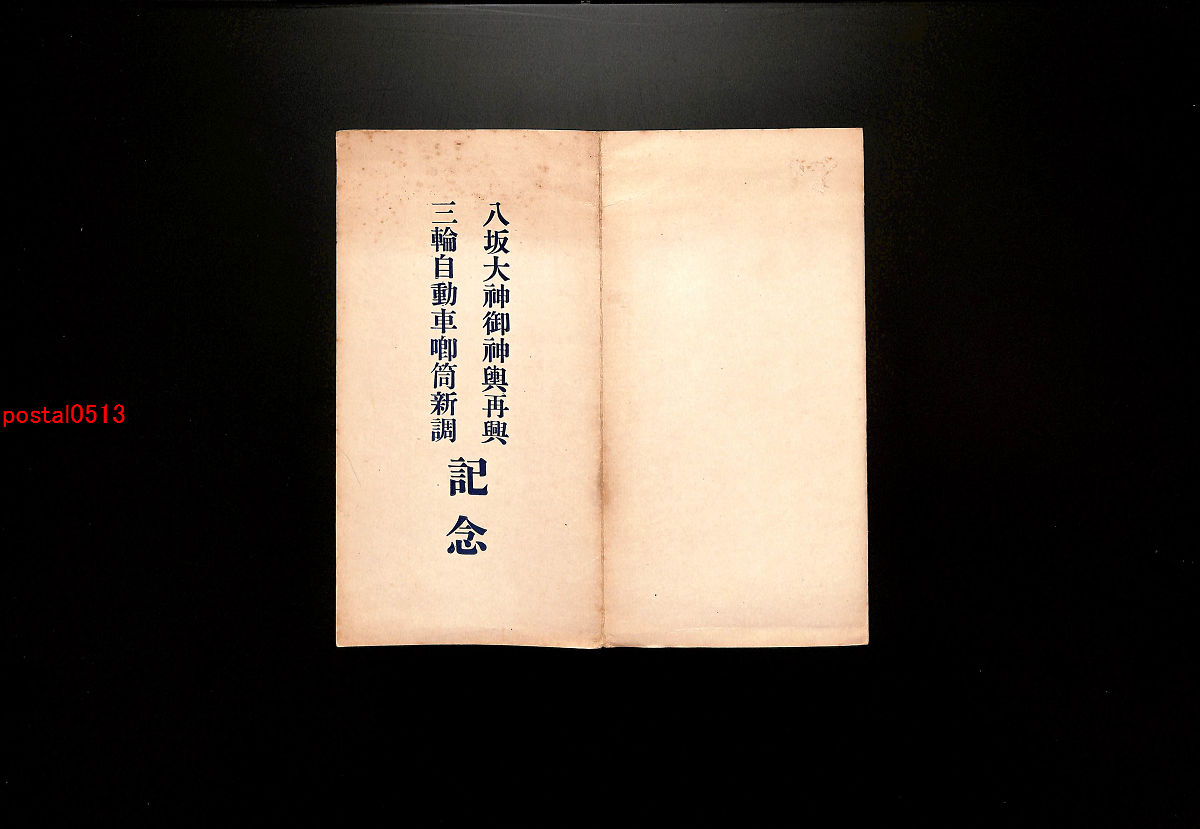 八坂大神御神輿再興
三輪自動車喞筒新調
記念
postal0513